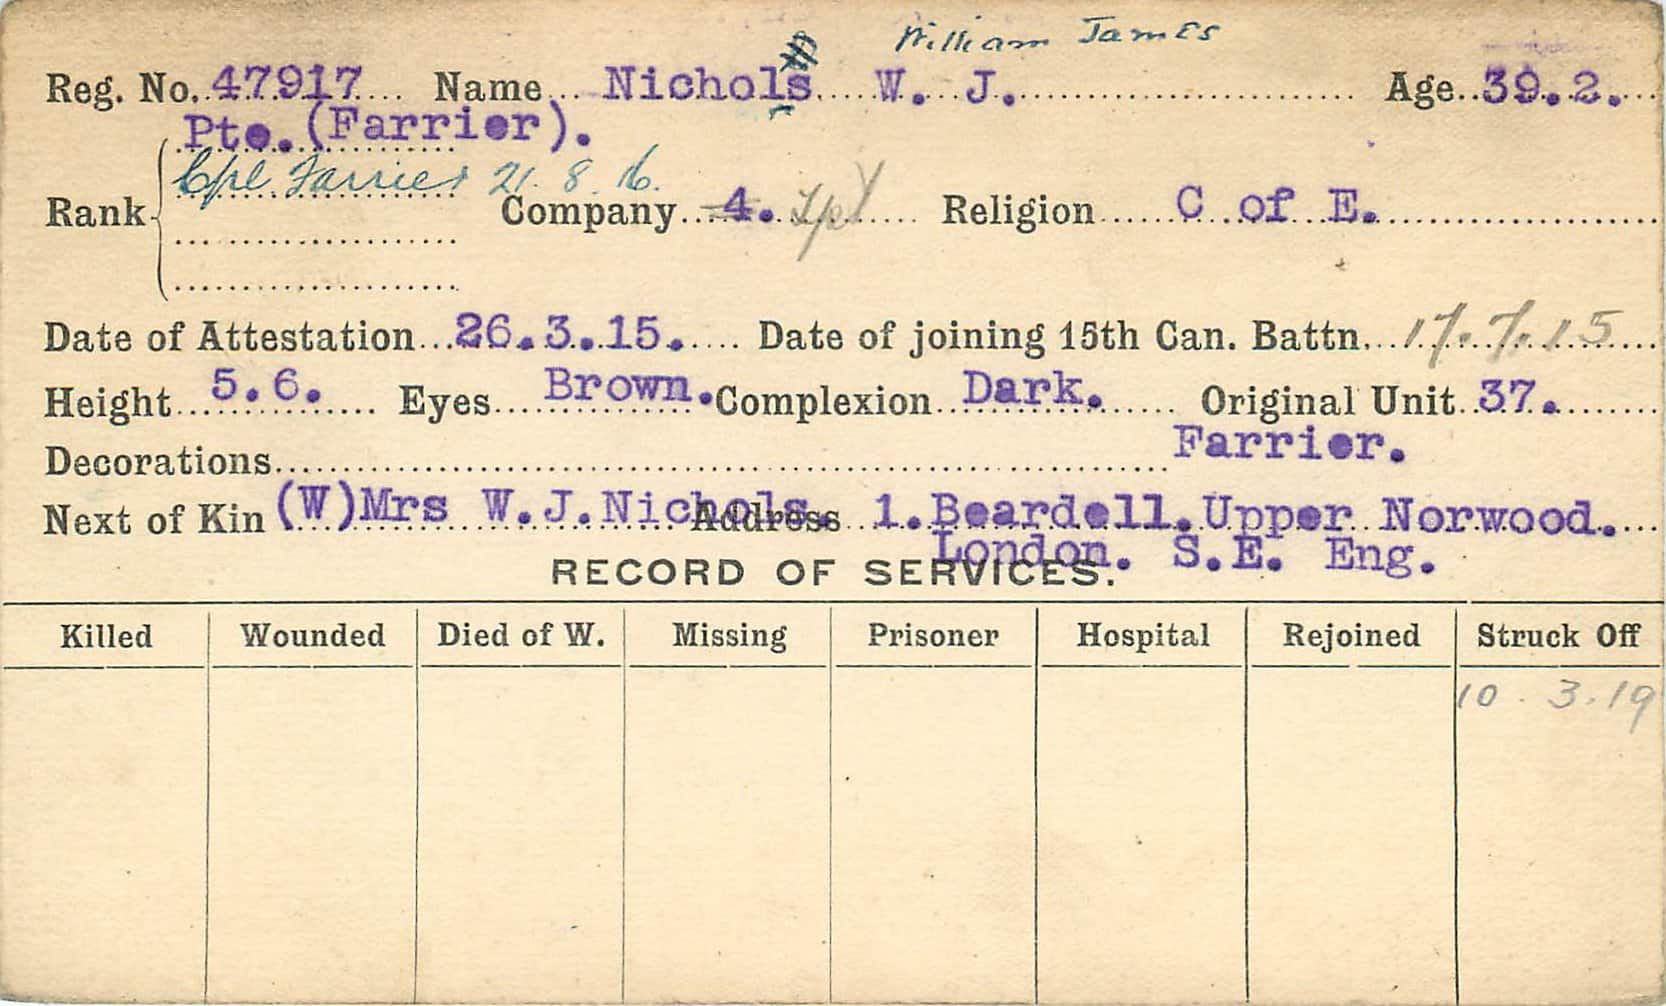 William James
Reg. No. 47917 Name Nichols W. J. Age 39.2.
Pte. (Farrier).
Cpl. Farrier 21. 8. 16.
Rank Company 4. Religion C of E.
Date of Attestation 26.3.15. Date of joining 15th Can. Battn. 17.7.15
Height 5.6. Eyes Brown. Complexion Dark. Original Unit 37.
Decorations Farrier.
Next of Kin (W)Mrs W.J.Nichols. Address 1.Beardell.Upper Norwood.
London. S.E. Eng.
RECORD OF SERVICES.
Killed Wounded Died of W. Missing Prisoner Hospital Rejoined Struck Off
10.3.19